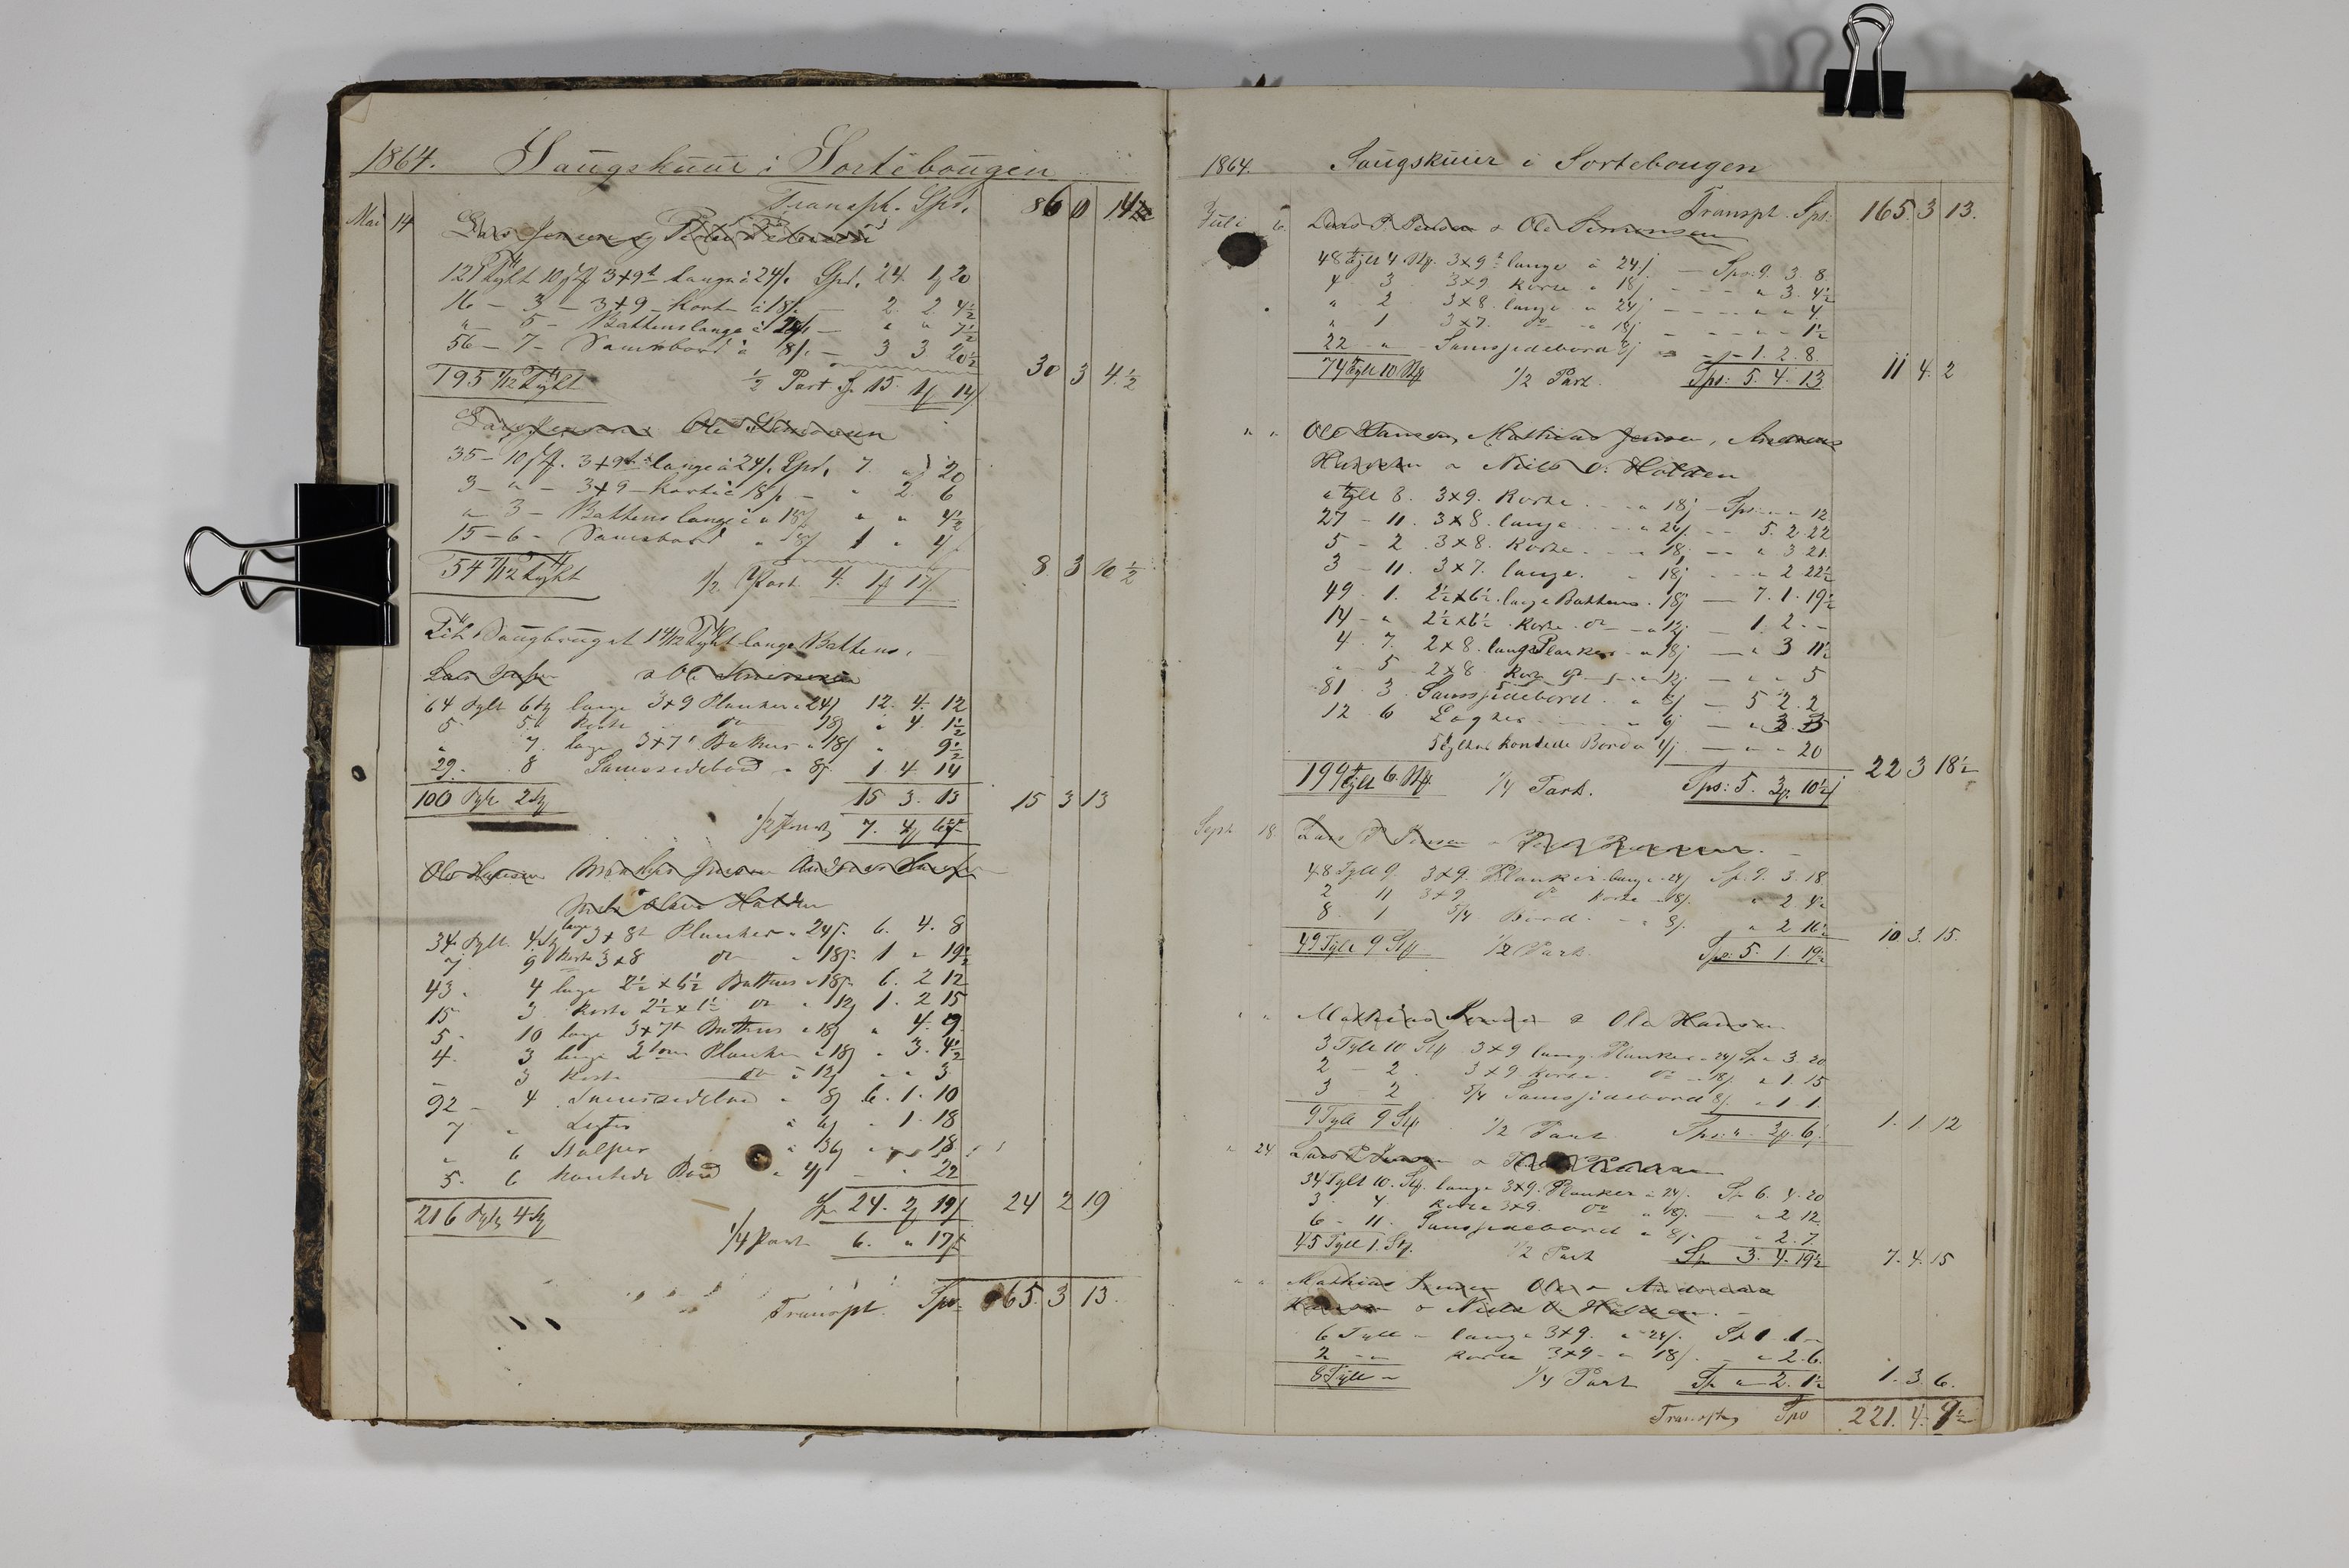 1864. Saugskuur i Sortebougen
Transpt. Spd. 86 0 14
Mai 14 Lars Jensen og Peder Pedersen
121 Tylt 10 stk 3+9t lange à 24/. Spd. 24 1 20
16 - 3 - 3+9 - korte à 18/. - 2. 2. 4½
" 5 - Battens lange à - " " 7½
56 - 7 - Bord à 8/. - 3 3 20½
195 1/12 Tylt ½ Part 15. 1 14 30 3 4½
Lars Jensen Ole Simonsen
35 - 10 stk. 3+9t lange à 24/. Spd. 7. " 20
3 - " - 3+9 - korte à 18/. - " 2. 6
" 3 - Battens lange à 18/ " " 4½
15 - 6 - " 8/ 1 " 4
54 7/12 Tylt ½ Part 4. 1 17 8 3 10½
Til Saugbruget 14/12 Tylt lange Battens.
Lars a Ole Simonsen
64 Tylt 6 lange 3+9 Planker à 24/ 12. 4. 12
5 5 korte do 18/ " 4. 1½
" 7. lange 3+7t Battens à 18/ " 9½
29. 8 Sidebord " 8/. 1 4. 14
100 Tylt 2 15 3. 13 15 3 13
½ Part 7. 4
Ole Hansen Mathias Jensen Andreas Hansen
Niels Olsen Holden
34 Tylt. 4 lange 3+8t Planker " 24/. 6. 4. 8
7. 9 korte 3+8 do " 18/. 1 " 19½
43. 4 lange 2½ x 6½ Battens " 18/. 6. 2 12
15 3 korte 2½ x 6½ do " 12/ 1. 2 15
5. 10 lange 3+7t Battens " 18/ " 4. 9
4. 3 lange Planker à 18/ " 3. 4½
" 3 korte do à 12/ " " 3
92 - 4 Sidebord " 8/ 6. 1. 10
7 " à 6/ " 1. 18
" 6 Stolper à 36/ " " 18
5. 6 kantede Bord " 4/ - " 22
216 Tylt 4 24. 2 19 24 2 19
1/4 Part 6. " 17
Transpt. Spd. 165. 3 13.
1864. Saugskuur i Sortebougen
Transpt. Spd. 165. 3 13.
Juli 6. Lars P. Jensen & Ole Simonsen
48 Tylt 4 Stk. 3x9t lange à 24/. - Spd: 9. 3. 8.
4 3 3x9 korte " 18/ - - " 3. 4½
" 2 3x8. lange " 24/ - - " " 4.
" 1 3x7. do " 18/ - " " 1½
22 - " Sidebord 8/ - 1. 2. 8.
74 Tylt 10 Stk ½ Part. Spd: 5. 4. 13 11 4. 2
" " Ole Hansen, Mathias Jensen, Andreas
Hansen & Niels O. Holden
" Tylt 8. 3x9. korte. " 18/ - Spd. " " 12
27 - 11. 3x8. lange " 24/. - 5. 2. 22
5 - 2. 3x8. korte. " 18/. - " 3 21.
3 - 11. 3x7. lange. " 18/ - " 2 22½
49. 1. 2½x6½. lange Battens. 18/ - 7. 1. 19½
14 - " 2½x6½. korte. do " 12/ - 1. 2. -
4. 7. 2x8. lange Planker " 18/ - " 3 11½
" 5 2x8. korte do " 12/ - " " 5
81. 3. Sidebord. " 8/ - 5 2. 2
12. 6 " 6/ - " 3. 3
5 Tylter kantede Bord " 4/ - " " 20
194 Tylt 6. Stk. ¼ Part. Spd: 5. 3. 10½ 22 3 18½
Sept 18. Lars P. Jensen & Peder Pedersen. -
48 Tylt 9. 3x9. Planker lange " 24/ Sp. 9. 3. 18.
2 11 3x9 do korte " 18/. " 2 4½
8. 1 5/4 Bord. " 8/. " 2 16½
49 Tylt 9 Stk ½ Part. Spd: 5. 1. 19½ 10. 3. 15.
" " Mathias Jensen & Ole Hansen.
3 Tylt 10 Stk 3x9 lange. Planker " 24/ Sp " 3. 20
2 - 2. 3x9 korte. do " 18/. " 1. 15
3 2 5/4 Sidebord 8/. " 1 1.
9 Tylt 9 Stk ½ Part. Spd: " 3. 6. 1. 1 12
" 24 Lars P. Jensen & Peder Pedersen
34 Tylt 10. Stk. lange 3x9. Planker à 24/. Sp 6. 4. 20
3. 4. korte 3x9. do " 18/. - " 2 12.
6 - 11. Sidebord " 8/. - " 2. 7.
45 Tylt 1. Stk. ½ Part Sp 3. 4. 19½ 7. 4. 15
" " Mathias Jensen Ole & Andreas
Hansen & Niels O. Holden. -
6 Tylt - lange 3x9. " 24/. Sp 1 1 -
2 - korte 3x9 - " 18/. - " 2. 6.
8 Tylt - ¼ Part Sp " 2. 1½ 1. 3. 6.
Transpt Spd 221. 4.